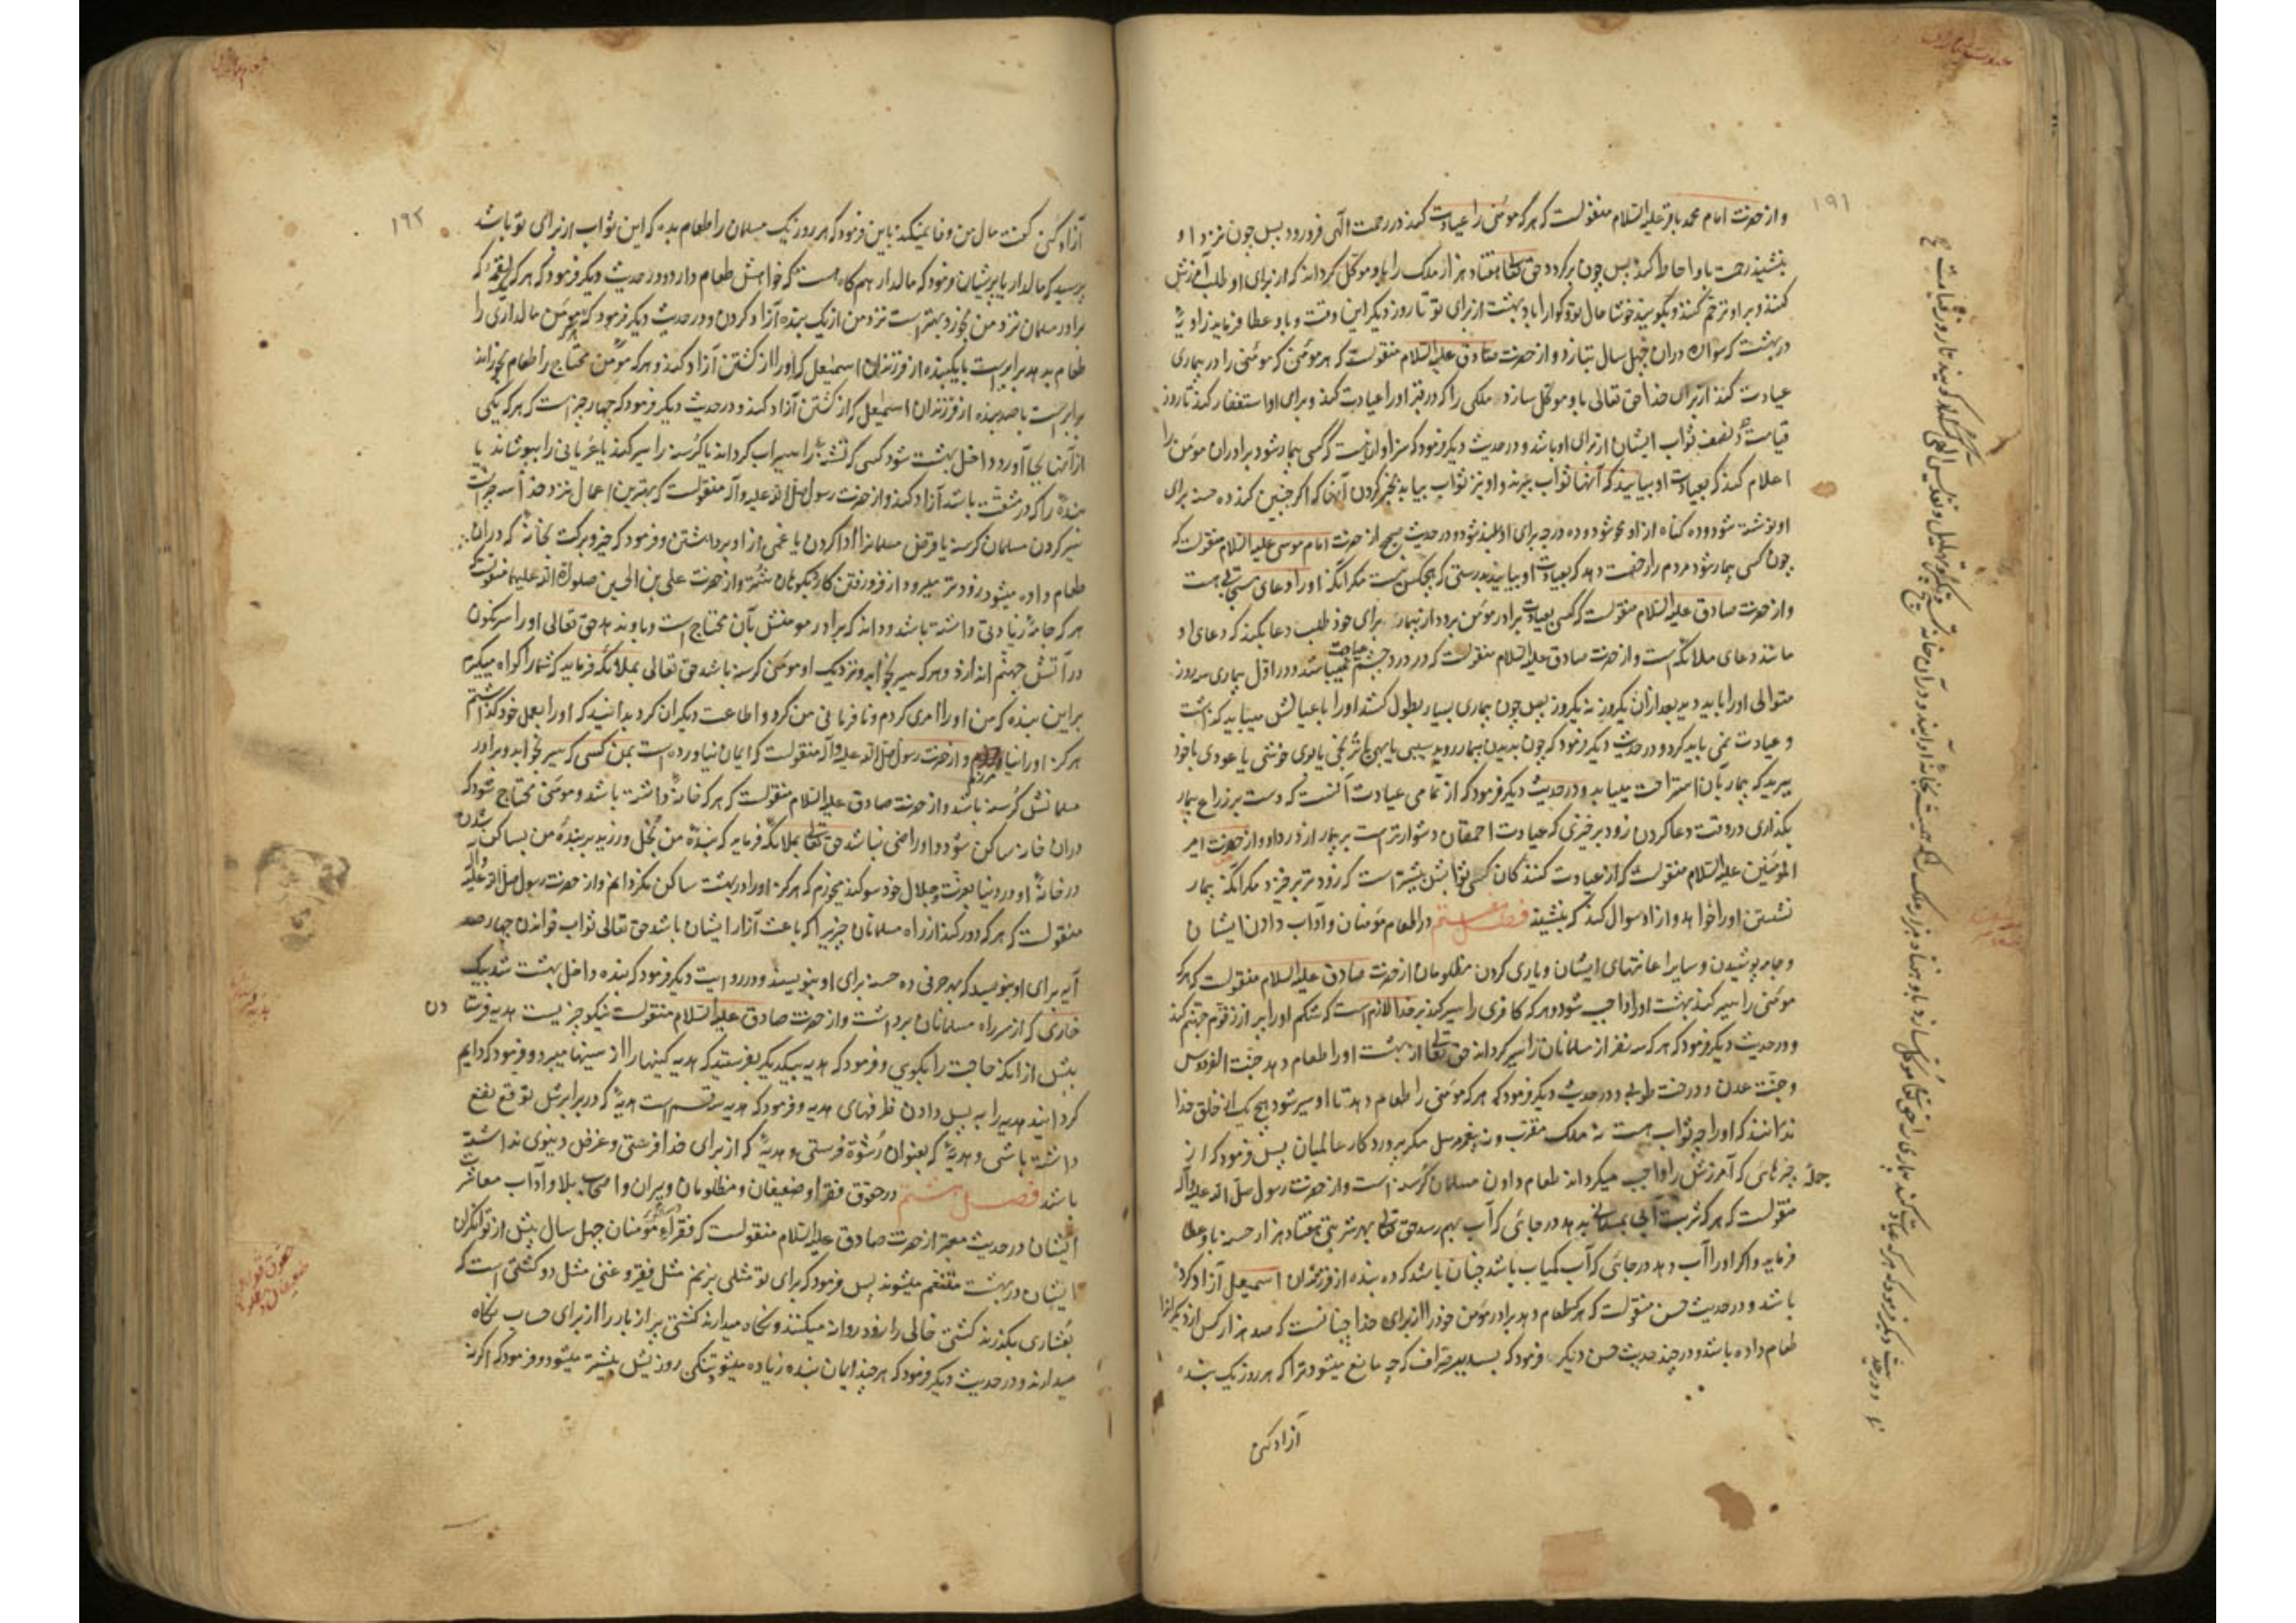 عیادت بیماران
۱۹۱
و از حضرت امام محمد باقر علیه السلام منقولست که هرکه مؤمنی را عیادت کند در رحمت الهی فرو رود پس چون نزد او
بنشیند رحمت باو احاطه کند پس چون برگردد حق تعالی هفتاد هزار ملک را باو موکل گرداند که از برای او طلب آمرزش
کنند و بر او ترحم کنند و بگویند خوشا حال تو و گوارا باد بهشت از برای تو تا روز دیگر این وقت و باو عطا فرماید زاویهٔ
در بهشت که سواره در آن چهل سال بتازد و از حضرت صادق علیه السلام منقولست که هر مؤمنی که مؤمنی را در بیماری
عیادت کند از برای خدا حق تعالی باو موکل سازد ملکی را که در قبر او را عیادت کند و برای او استغفار کند تا روز
قیامت و نصف ثواب ایشان از برای او باشد و در حدیث دیگر فرمود که سزاوار است که کسی بیمار شود برادران مؤمن را
اعلام کند که بعیادت او بیایند که آنها ثواب ببرند و او نیز ثواب بیابد بخبر کردن آنها که اگر چنین کند ده حسنه برای
او نوشته شود و ده گناه از او محو شود و ده درجه برای او بلند شود و در حدیث صحیح از حضرت امام موسی علیه السلام منقولست که
چون کسی بیمار شود مردم را رخصت دهد که بعیادت او بیایند بدرستی که هیچکس نیست مگر آنکه او را دعای مستجابی هست
و از حضرت صادق علیه السلام منقولست که کسی بعیادت برادر مؤمن برود از بیمار برای خود طلب دعا بکند که دعای او
مانند دعای ملائکه است و از حضرت صادق علیه السلام منقولست که در درد چشم عیادت نمیباشد و در اول بیماری سه روز
متوالی او را باید دید بعد از آن یکروز نه یکروز پس چون بیماری بسیار بطول کشد او را با عیالش میباید گذاشت
و عیادت نمی باید کرد و در حدیث دیگر فرمود که چون بدیدن بیمار روید سیبی یا بهی یا ترنجی یا بوی خوشی یا عودی با خود
ببرید که بیمار بآن استراحت مییابد و در حدیث دیگر فرمود که از تمامی عیادت آنست که دست بر ذراع بیمار
بگذاری در وقت دعا کردن و زود برخیزی که عیادت احمقان دشوارتر است بر بیمار از درد او و از حضرت امیر
المؤمنین علیه السلام منقولست که از عیادت کنندگان کسی ثوابش بیشتر است که زودتر برخیزد مگر آنکه بیمار
نشستن او را خواهد و از او سوال کند که بنشیند فصل هفتم در اطعام مؤمنان و آداب دادن ایشان
و جامه پوشیدن و سایر اعانتهای ایشان و یاری کردن مظلومان از حضرت صادق علیه السلام منقولست که هرکه
مؤمنی را سیر کند بهشت او را واجب شود و هرکه کافری را سیر کند بر خدا لازم است که شکم او را پر از زقوم جهنم کند
و در حدیث دیگر فرمود که هرکه سه نفر از مسلمانان را سیر گرداند حق تعالی از بهشت او را طعام دهد جنت الفردوس
و جنت عدن و درخت طوبی و در حدیث دیگر فرمود که هرکه مؤمنی را طعام دهد تا او سیر شود هیچ یک از خلق خدا
ندانند که او را چه ثواب هست نه ملک مقرب و نه پیغمبر مرسل مگر پروردگار عالمیان پس فرمود که از
جمله چیزهائی که آمرزش را واجب میگرداند طعام دادن مسلمان گرسنه است و از حضرت رسول صلی الله علیه و آله
منقولست که هرکه شربت آبی بمسلمانی بدهد در جائی که آب بهم رسد حق تعالی بهر شربتی هفتاد هزار حسنه باو عطا
فرماید و اگر او را آب دهد در جائی که آب کمیاب باشد چنان باشد که ده بنده از فرزندان اسمعیل آزاد کرده
باشد و در حدیث حسن منقولست که هرکه طعام دهد برادر مؤمن خود را از برای خدا چنانست که صد هزار کس از دیگران را
طعام داده باشد و در چند حدیث حسن دیگر فرمود که بسدیر صراف که چه مانع میشود ترا که هر روز یک بنده
آزاد کنی
۱۹۲
آزاد کنی گفت مال من وفا نمیکند باین فرمود که هر روز یک مسلمان را طعام بده که این ثواب از برای تو باشد
پرسید که مالدار یا پریشان فرمود که مالدار هم گاه هست که خواهش طعام دارد و در حدیث دیگر فرمود که هر لقمهٔ که
برادر مسلمان نزد من بخورد بهتر است نزد من از یک بنده آزاد کردن و در حدیث دیگر فرمود که هرکه مؤمن مالداری را
طعام بدهد برابر است با یکبنده از فرزندان اسمعیل که او را از کشتن آزاد کند و هرکه مؤمن محتاج را طعام بخوراند
برابر است با صد بنده از فرزندان اسمعیل که از کشتن آزاد کند و در حدیث دیگر فرمود که چهار چیز است که هرکه یکی
از آنها بجا آورد داخل بهشت شود کسی که تشنهٔ را سیراب گرداند یا گرسنهٔ را سیر کند یا عریانی را بپوشاند یا
بندهٔ را که در مشقت باشد آزاد کند و از حضرت رسول صلی الله علیه و آله منقولست که بهترین اعمال نزد خدا سه چیز است
سیر کردن مسلمان گرسنه یا قرض مسلمانرا ادا کردن یا غمی از او برداشتن و فرمود که خیر و برکت بخانهٔ که در آن
طعام داده میشود زودتر میرود از فرو رفتن کارد بکوهان شتر و از حضرت علی بن الحسین صلوات الله علیهما منقولست
هرکه جامهٔ زیادتی داشته باشد و داند که برادر مومنش بآن محتاج است و باو ندهد حق تعالی او را سرنگون
در آتش جهنم اندازد و هرکه سیر بخوابد و نزدیک او مؤمن گرسنه باشد حق تعالی بملائکه فرماید که شما را گواه میگیرم
بر این بنده که من او را امری کردم و نافرمانی من کرد و اطاعت دیگران کرد بدانید که او را بعمل خود گذاشتم
هرگز او را نیامرزم و از حضرت رسول صلی الله علیه و آله منقولست که ایمان نیاورده است بمن کسی که سیر بخوابد و برادر
مسلمانش گرسنه باشد و از حضرت صادق علیه السلام منقولست که هرکه خانهٔ داشته باشد و مؤمنی محتاج شود که
در آن خانه ساکن شود و او راضی نباشد حق تعالی بملائکه فرماید که بندهٔ من بخل ورزید بر بندهٔ من بساکن شدن
در خانهٔ او در دنیا بعزت و جلال خود سوگند میخورم که هرگز او را در بهشت ساکن نگردانم و از حضرت رسول صلی الله علیه و آله
منقولست که هرکه دور کند از راه مسلمانان چیزیرا که باعث آزار ایشان باشد حق تعالی ثواب خواندن چهارصد
آیه برای او بنویسد که بهر حرفی ده حسنه برای او بنویسند و در روایت دیگر فرمود که بنده داخل بهشت شد بیک
خاری که از سر راه مسلمانان برداشت و از حضرت صادق علیه السلام منقولست نیکو چیزیست هدیه فرستادن
پیش از آنکه حاجت را بگوئی و فرمود که هدیه بیکدیگر بفرستید که هدیه کینها را از سینها میبرد و فرمود که دایم
گردانید هدیه را به پس دادن ظرفهای هدیه و فرمود که هدیه سه قسم است هدیهٔ که در برابرش توقع نفع
داشته باشی و هدیهٔ که بعنوان رشوه فرستی و هدیهٔ که از برای خدا فرستی و غرض دنیوی نداشته
باشد فصل هشتم در حقوق فقرا و ضعیفان و مظلومان و پیران و اصحاب بلا و آداب معاشرت
ایشان در حدیث معتبر از حضرت صادق علیه السلام منقولست که فقراء مؤمنان چهل سال پیش از توانگران
ایشان در بهشت متنعم میشوند پس فرمود که برای تو مثلی بزنم مثل فقیر و غنی مثل دو کشتی است که
بعشاری بگذرند کشتی خالی را زود روانه میکنند و نگاه میدارند کشتی پر از بار را از برای حساب نگاه
میدارند و در حدیث دیگر فرمود که هر چند ایمان بنده زیاده میشود تنگی روزیش بیشتر میشود و فرمود که اگر نه